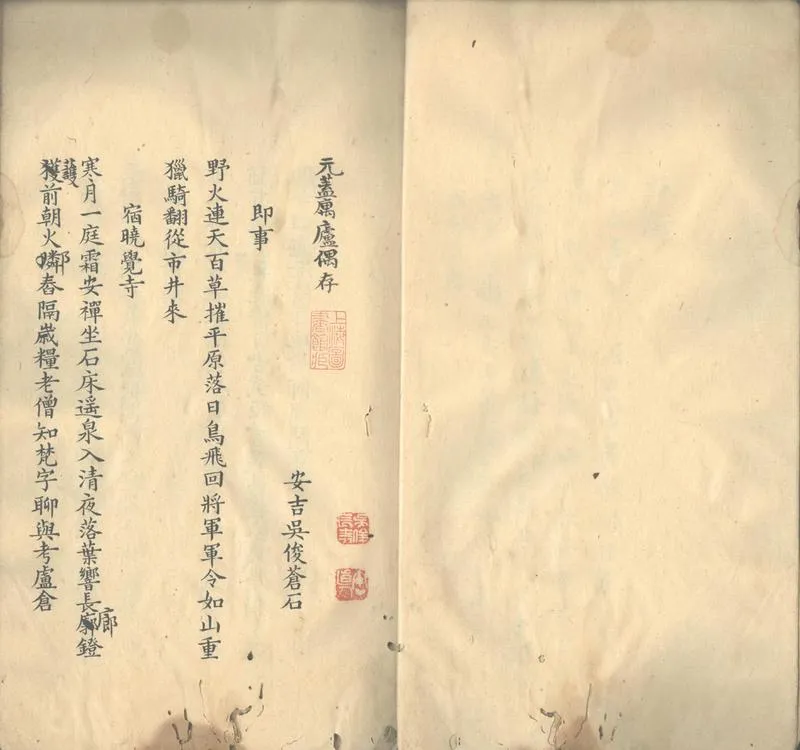 元蓋庽廬偶存
上海圖
書館藏
安吉吳俊蒼石
吳俊
長壽
即事
野火連天百草摧平原落日鳥飛回將軍軍令如山重
獵騎翻從市井來
宿曉覺寺
寒月一庭霜安禪坐石床遥泉入清夜落葉響長廊鐙
護前朝火鄰舂隔歲糧老僧知梵字聊與考盧倉